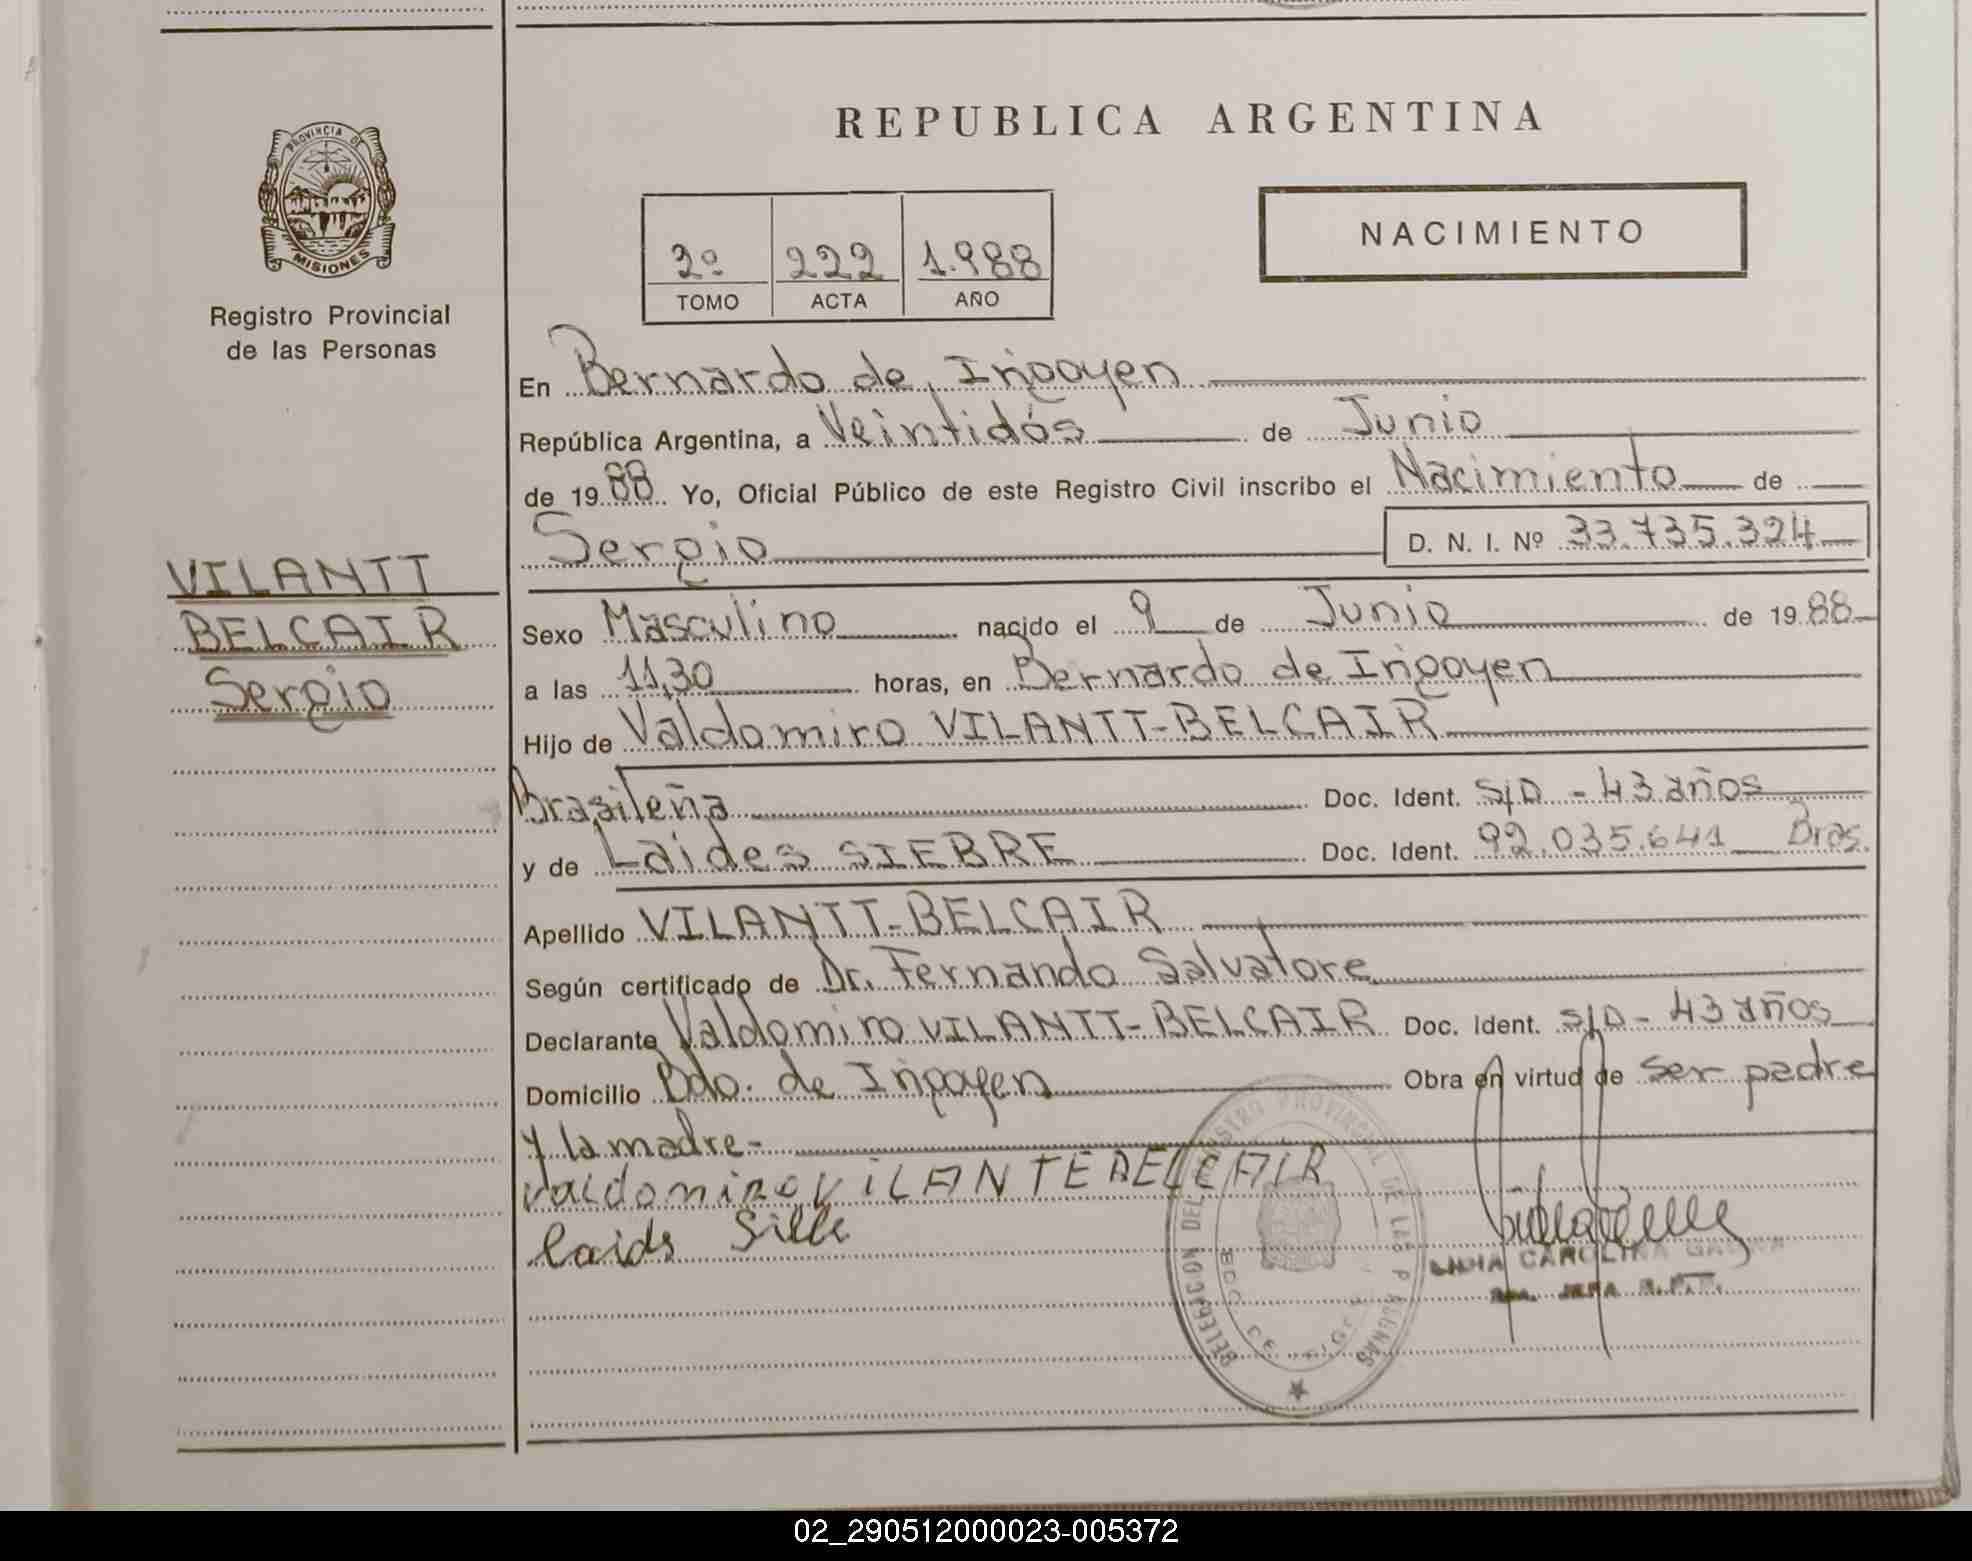 PROVINCIA DE
MISIONES
Registro Provincial
de las Personas
VILANTT
BELCAIR
Sergio
REPUBLICA ARGENTINA
2º 222 1.988
TOMO ACTA AÑO
NACIMIENTO
En Bernardo de Irigoyen
República Argentina, a Veintidós de Junio
de 1988 Yo, Oficial Público de este Registro Civil inscribo el Nacimiento de
Sergio D. N. I. Nº 33.735.324
Sexo Masculino nacido el 9 de Junio de 1988
a las 11,30 horas, en Bernardo de Irigoyen
Hijo de Valdomiro VILANTT-BELCAIR
Brasileña Doc. Ident. S/D - 43 años
y de Laides SIEBRE Doc. Ident. 92.035.641 Bras.
Apellido VILANTT-BELCAIR
Según certificado de Dr. Fernando Salvatore
Declarante Valdomiro VILANTT-BELCAIR Doc. Ident. S/D - 43 años
Domicilio Bdo. de Irigoyen Obra en virtud de ser padre
y la madre.-
Valdomiro VILANTE BELCAIR
DELEGACION DEL REGISTRO PROVINCIAL DE LAS PERSONAS
CAROLINA
JEFA
02_290512000023-005372